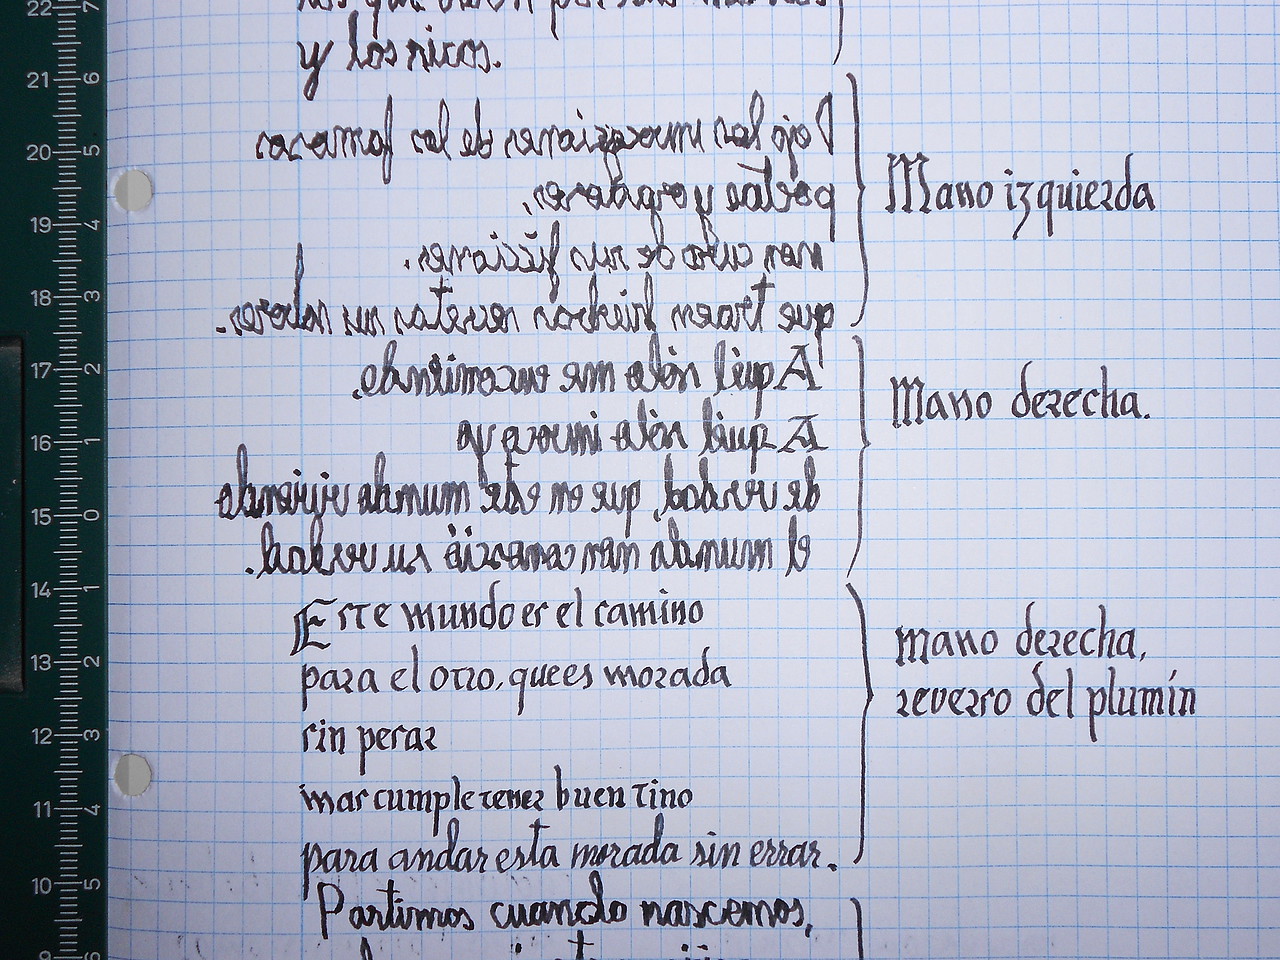 y los ricos.
Dejo las invocaciones de los famosos
poetas y oradores,
non curo de sus ficciones,
que traen hierbas secretas sus sabores.
Mano izquierda
A aquél sólo me encomiendo,
A aquél sólo invoco yo
de verdad, que en este mundo viviendo
el mundo non conoció su verdad.
Mano derecha.
Este mundo es el camino
para el otro, que es morada
sin pesar
mas cumple tener buen tino
para andar esta morada sin errar.
mano derecha,
reverso del plumín
Partimos cuando nascemos,